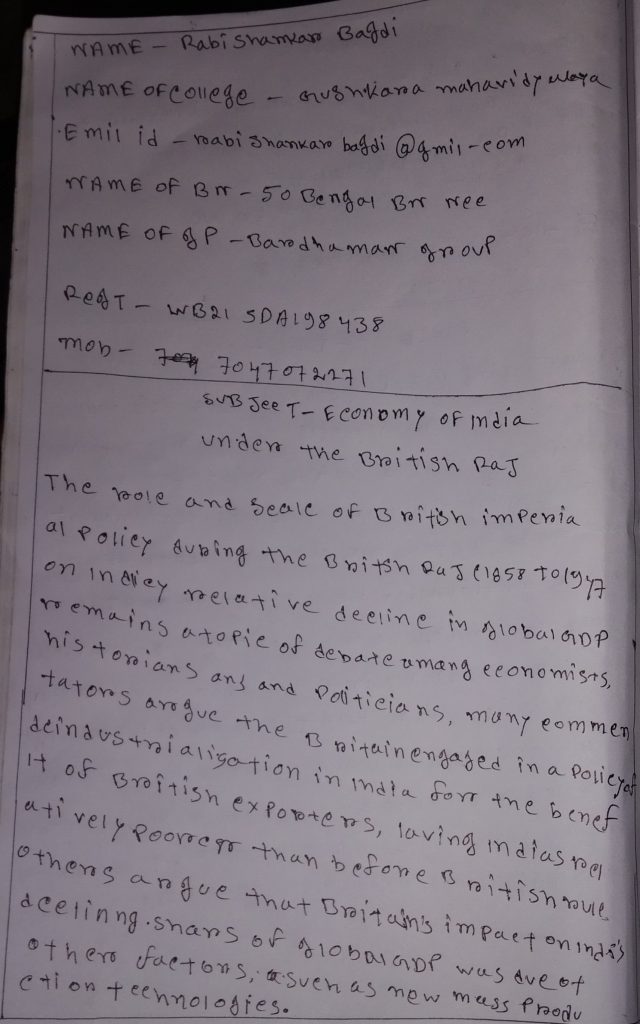 NAME - Rabi Shankar Bagdi
NAME OF College - Gushkara mahavidyalaya
Emil id - rabi shankar bagdi @gmil-com
NAME OF Bn - 50 Bengal Bn Nee
NAME OF GP - Barddhaman group
RegT - WB21 SDA198438
mob - 7047072271
SUBJecT - Economy of India
under the British RaJ
The role and Scale of British imperia
al policy during the British RaJ (1858 To 1947
on relative decline in global GDP
remains a topic of debate amang economists,
historians ans and Politicians, many commen
tators argue the Britain engaged in a policy of
deindustrialigation in India for the benef
it of British exporters, laving Indias rel
atively poorer than before British rule
others argue that Britain's impact on India's
deelinng. share of global GDP was due of
other factors, as such as new mass Produ
ction technologies.